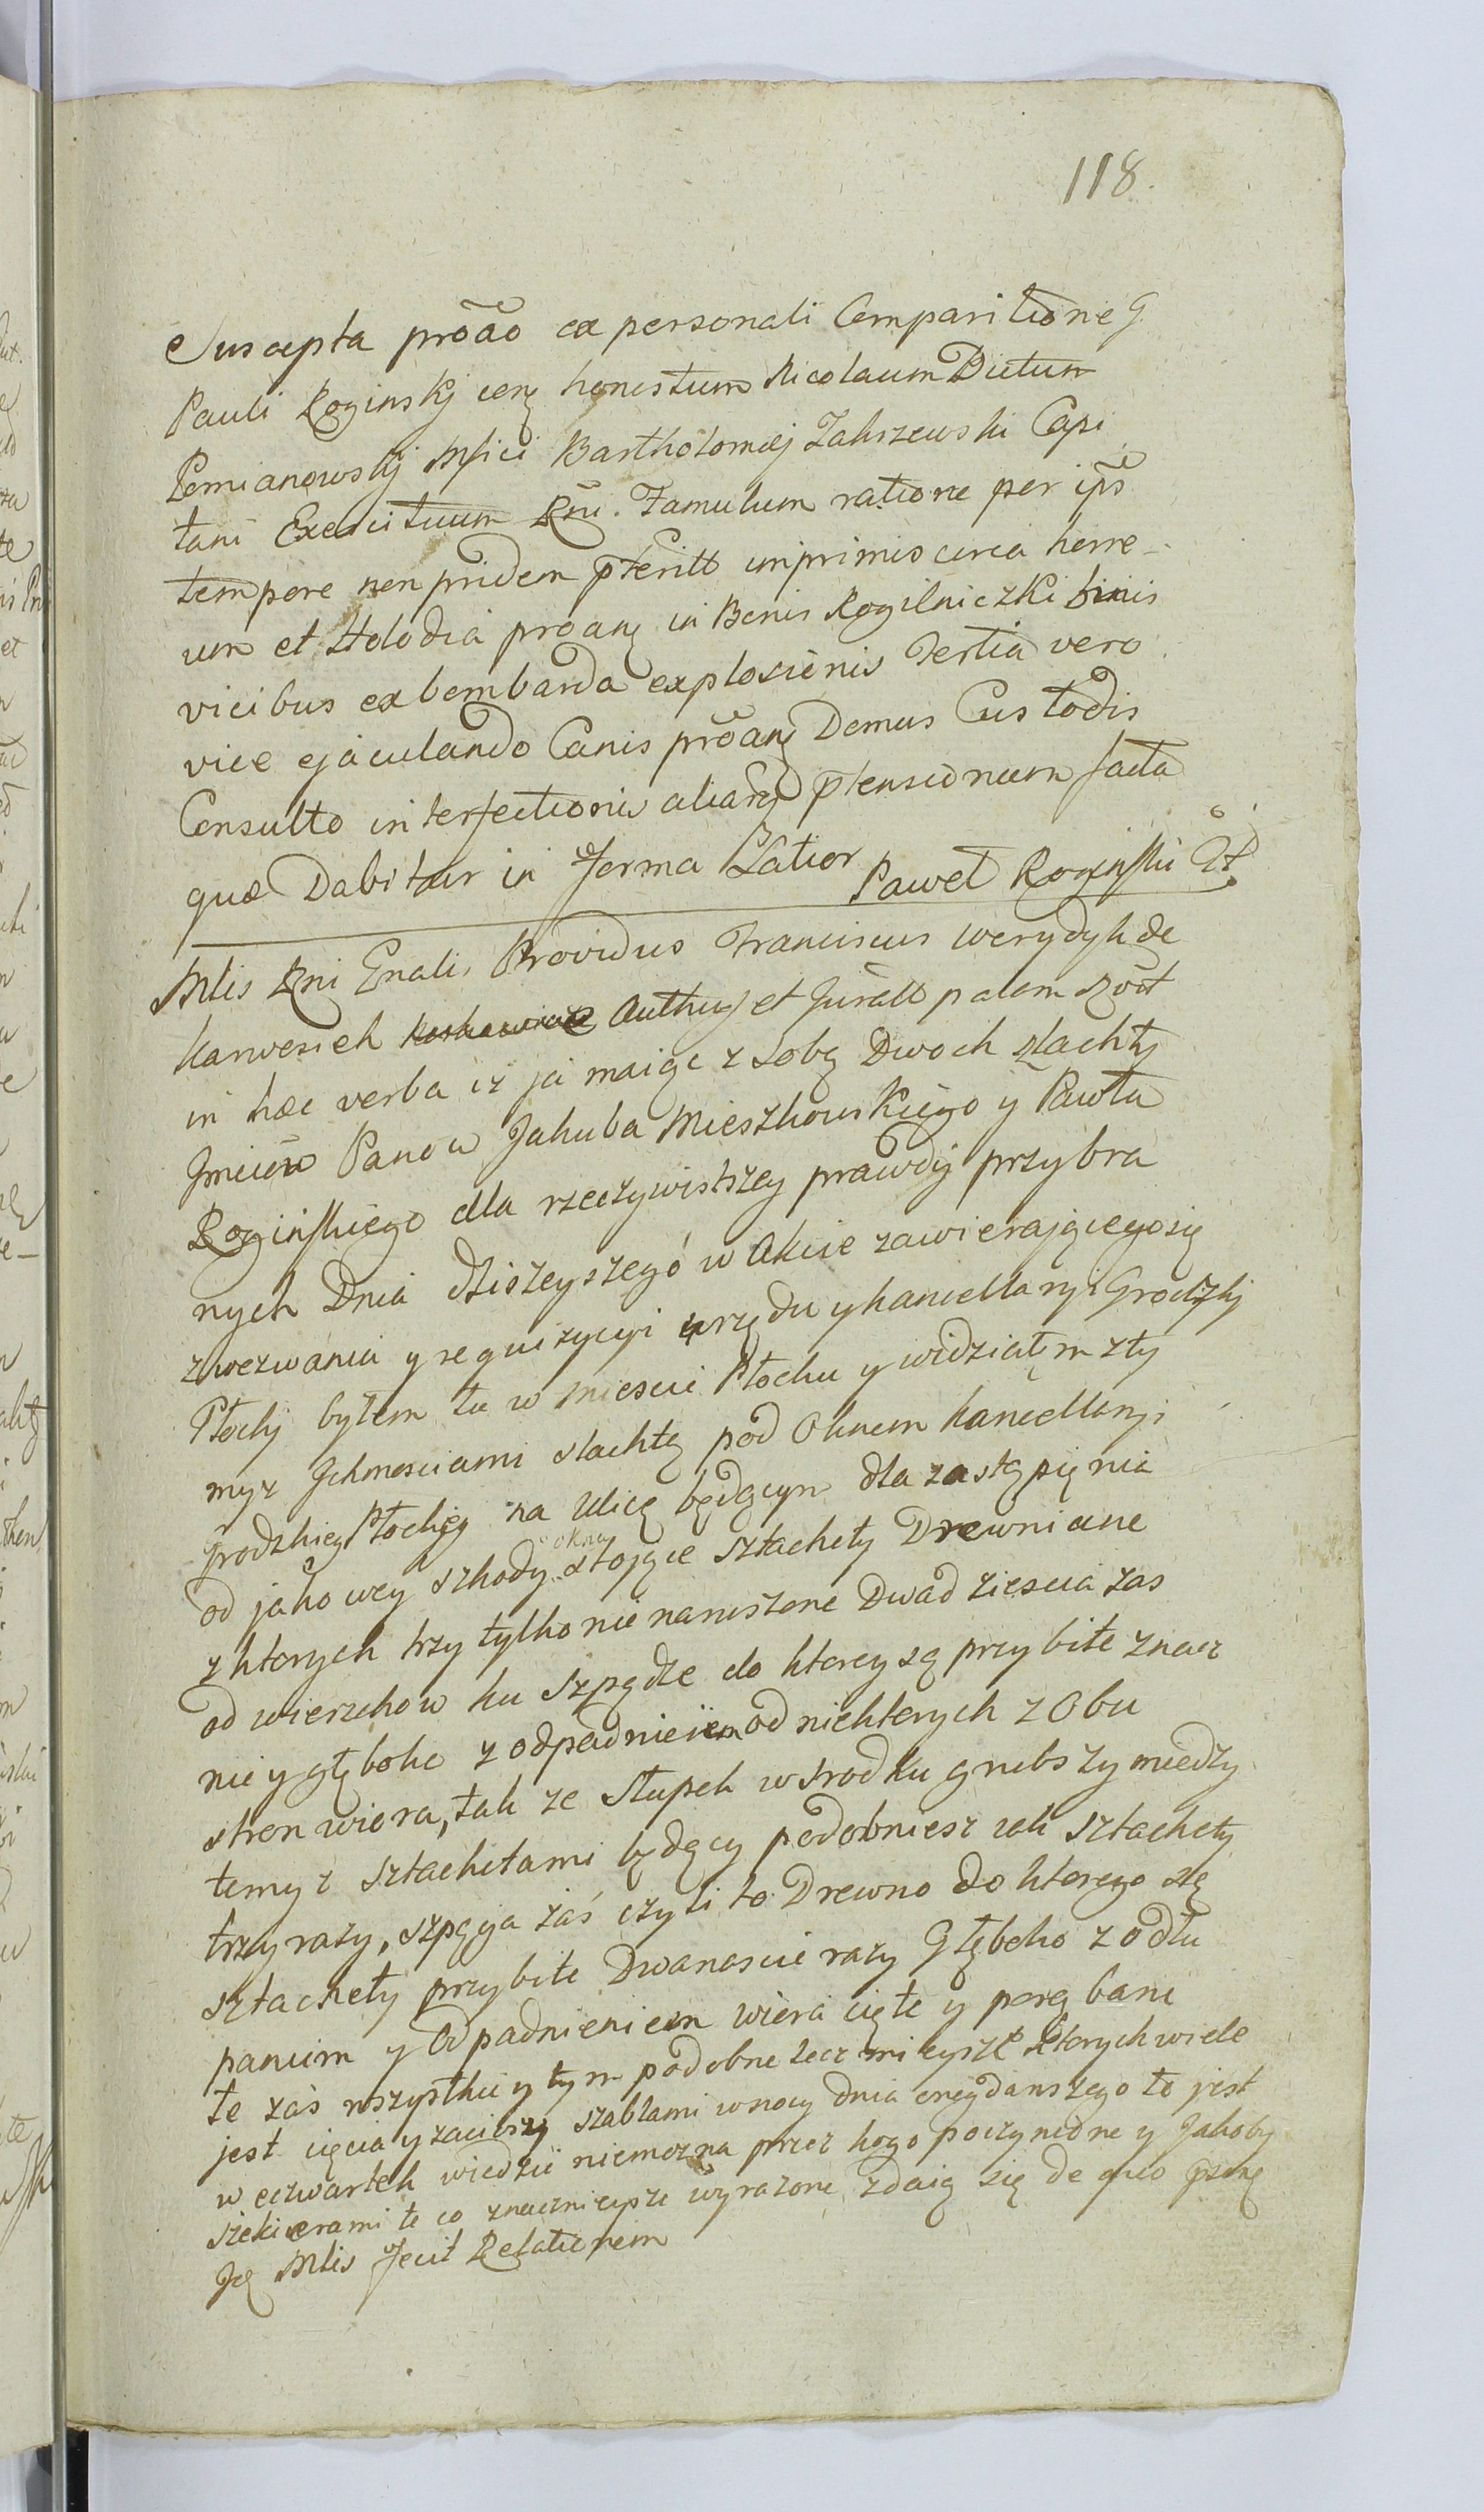 118.
Suscepta prõão ex personali Comparitione G
Pauli Roginskj cerę honestum Nicolaum Dictum
Pemianowskj Mfici Bartholomej Zakrzewski Capi
tani Exercituum Rni. Famulum ratione per ips
tempore non pridem pterito imprimis circa horre-
um et Stolodia proanę in Bonis Rogilniczki binis
vicibus ex bombarda explosionis Tertia vero
vice ejaculando Canis prõanę Domus Custodis
Consulto interfectionis aliarę ptensionum facta
quæ Dabitur in Forma Latior Paweł Roginski
Mlis Rni Gnalis Providus Franciscus werydyk de
Karwosiek Authus et Jurãtt palam rẽõt
in hæc verba iz ja maiąc z Sobą Dwoch szlachty
Jmciów Panow Jakuba Mieszkowskiego y Pawła
Roginskiego dla rzeczywistszey prawdy przybra
nych Dnia dzisieyszego w Akcie zawierającego się
z wezwania y requizycyi urzędu y kancellaryi Grodzkj
Płockj byłem tu w miescie Płocku y widziałęm z ty
myz Jchmosciami slachtą pod Oknem kancellaryi
Grodzkiey Płockiey na Ulicę będącym dla zastąpięnia
od jakowey szkody okna stojące sztachety Drewniane
z ktorych trzy tylko nienaruszone Dwadziescia zas
od wierzchow ku szpądze do ktorey są przybite znacz
nie y głęboko z odpadnieniem od niektorych z Obu
stron wiora, tak ze Słupek w srodku grubszy miedzy
temyz sztachetami będący podobniesz jak sztachety
trzy razy, szpąga zaś czyli to Drewno do ktorego są
sztachety przybite Dwanascie razy Głęboko z odłu
paniem y Odpadnieniem wiora cięte y porąbane
te zas wszystkie y tym podobne lecz mnieysze ktorych wiele
jest cięcia y zaciosy szablami w nocy dnia onegdayszego to jest
w czwartek wiedzić niemozna przez kogo poczynione y Jakoby
siekierami te co znacznieysze wyrazone zdaią się de quo psenę
Ję Mlis Fecit Relationem